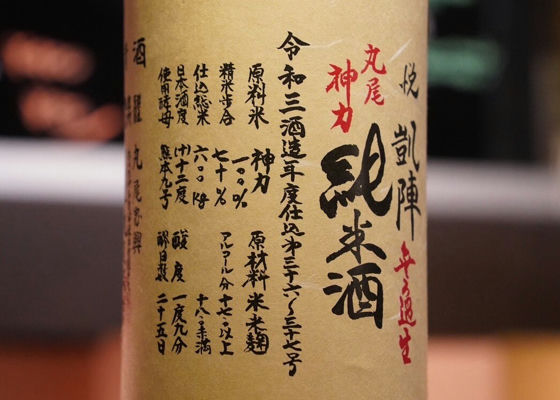 悦凱陣 無濾過生
丸尾
神力
純米酒
令和三酒造年度仕込第三十六〜三十七号
原料米 神力 一〇〇% 原材料 米米麹
精米歩合 七十% アルコール分 十七以上
仕込総米 六〇〇kg 十八未満
日本酒度 (十)十二度 酸度 一度九分
使用酵母 熊本九号 醪日数 二十五日
酒
丸尾